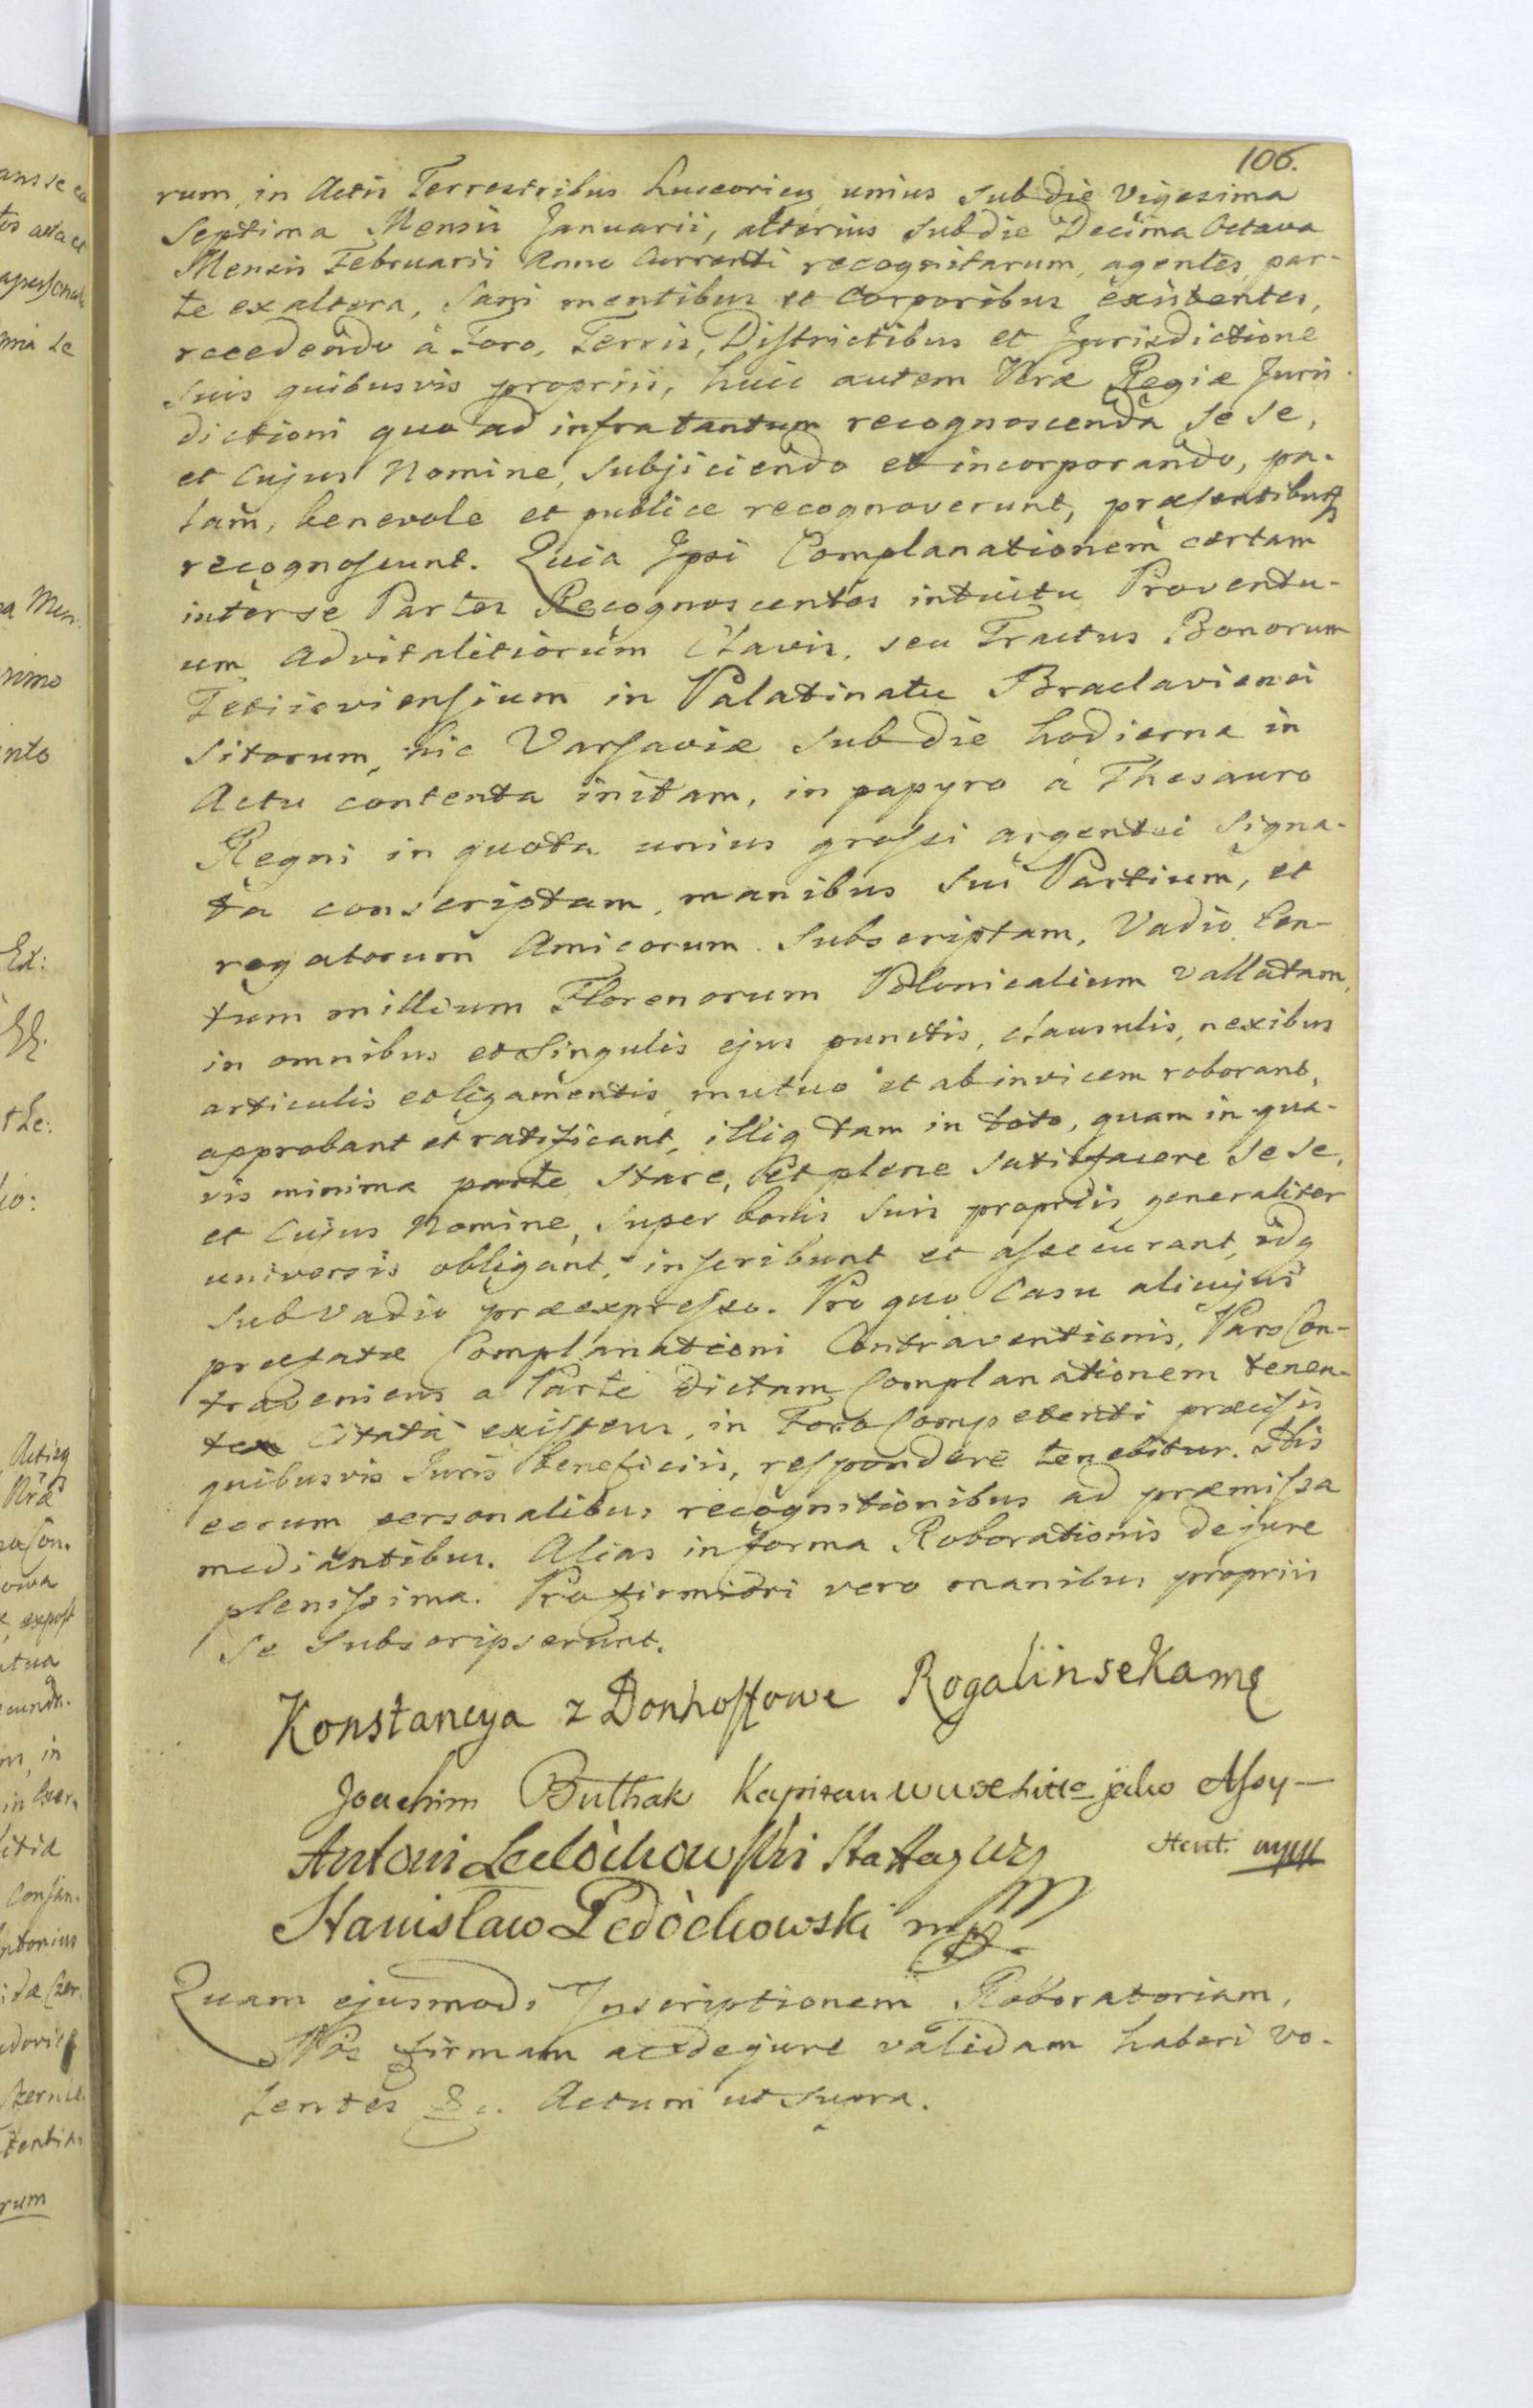 106.
rum, in Actis Terrestribus Luceorien unius sub die Vigesima
Septima Mensis Januarii, alterius sub die Decima Octava
Mensis Februarii Anno Currenti recognitarum, agentes, par-
te ex altera, Sani mentibus et Corporibus existentes,
recedendo à Foro, Terris, Districtibus et Jurisdictione
suis quibusvis propriis, huic autem Vræ Regiæ Juris-
dictioni quo ad infra tantum recognoscenda se se,
et cujus Nomine, subjiciendo et incorporando, pa-
lam, benevole et publice recognoverunt, præsentibusq
recognoscunt. Quia Ipsi Complanationem certam
inter se Partes Recognoscentes intuitu Proventu-
um Advitalitiorum Clavis, seu Tractus Bonorum
Teticoviensium in Palatinatu Braclaviensi
sitorum, hic Varsaviæ sub die hodierna in
Actu contenta initam, in papyro à Thesauro
Regni in quota unius grossi argentei signa-
ta conscriptam, manibus sui Partium, et
rogatorum Amicorum subscriptam, Vadio Cen-
tum millium Florenorum Polonicalium vallatam,
in omnibus et singulis ejus punctis, clausulis, nexibus
articulis et ligamentis, mutuo et ab invicem roborant,
approbant et ratificant, illiq tam in toto, quam in qua-
vis minima parte stare, et plene satisfacere se se,
et cujus Nomine, super bonis suis propriis generaliter
universis obligant, inscribunt et assecurant, idq
sub Vadio præexpresso. Pro quo Casu alicujus
præfatæ Complanationi Contraventionis, Pars Con-
traveniens a Parte dictam Complanationem tenen-
te Citata existens, in Foro Competenti præcisis
quibusvis Juris beneficiis, respondere tenebitur. His
eorum personalibus recognitionibus ad præmissa
mediantibus. Alias in forma Roborationis de jure
plenissima. Pro firmiori vero manibus propriis
se subscripserunt.
Konstancya z Donhoffowe Rogalinsekamę
Joachim Buthak Kapitan jako Assy-
stent. mpp
Antoni Ledòchowski Sta
Stanisław Ledòchowski mpp
Quam ejusmodi Inscriptionem Roboratoriam,
Nos firmam ac de jure validam haberi vo-
lentes &c. Actum ut supra.